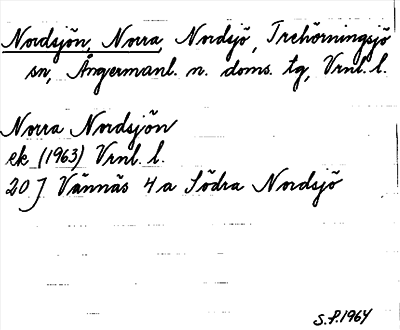 Nordsjön, Norra, Nordsjö, Trehörningsjö
sn, Ångermanl. n. doms. tg, Vrnl. l.
Norra Nordsjön
ek (1963) Vrnl. l.
20 J Vännäs 4a Södra Nordsjö
S.P.1964